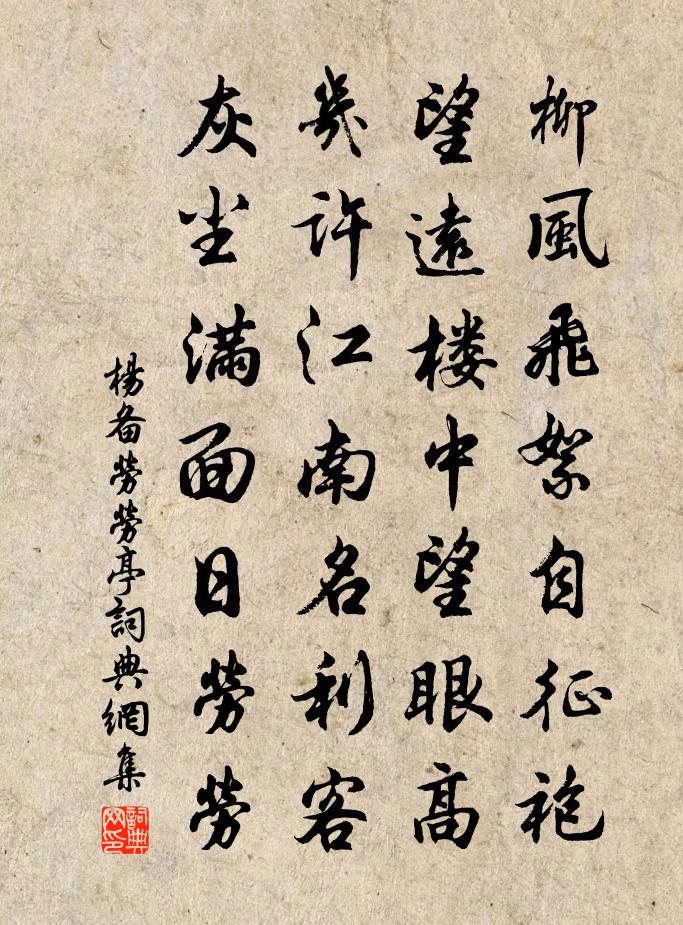 柳風飛絮自征袍
望遠楼中望眼高
幾許江南名利客
灰尘滿面日勞勞
楊备勞勞亭詞典網集
詞典网印